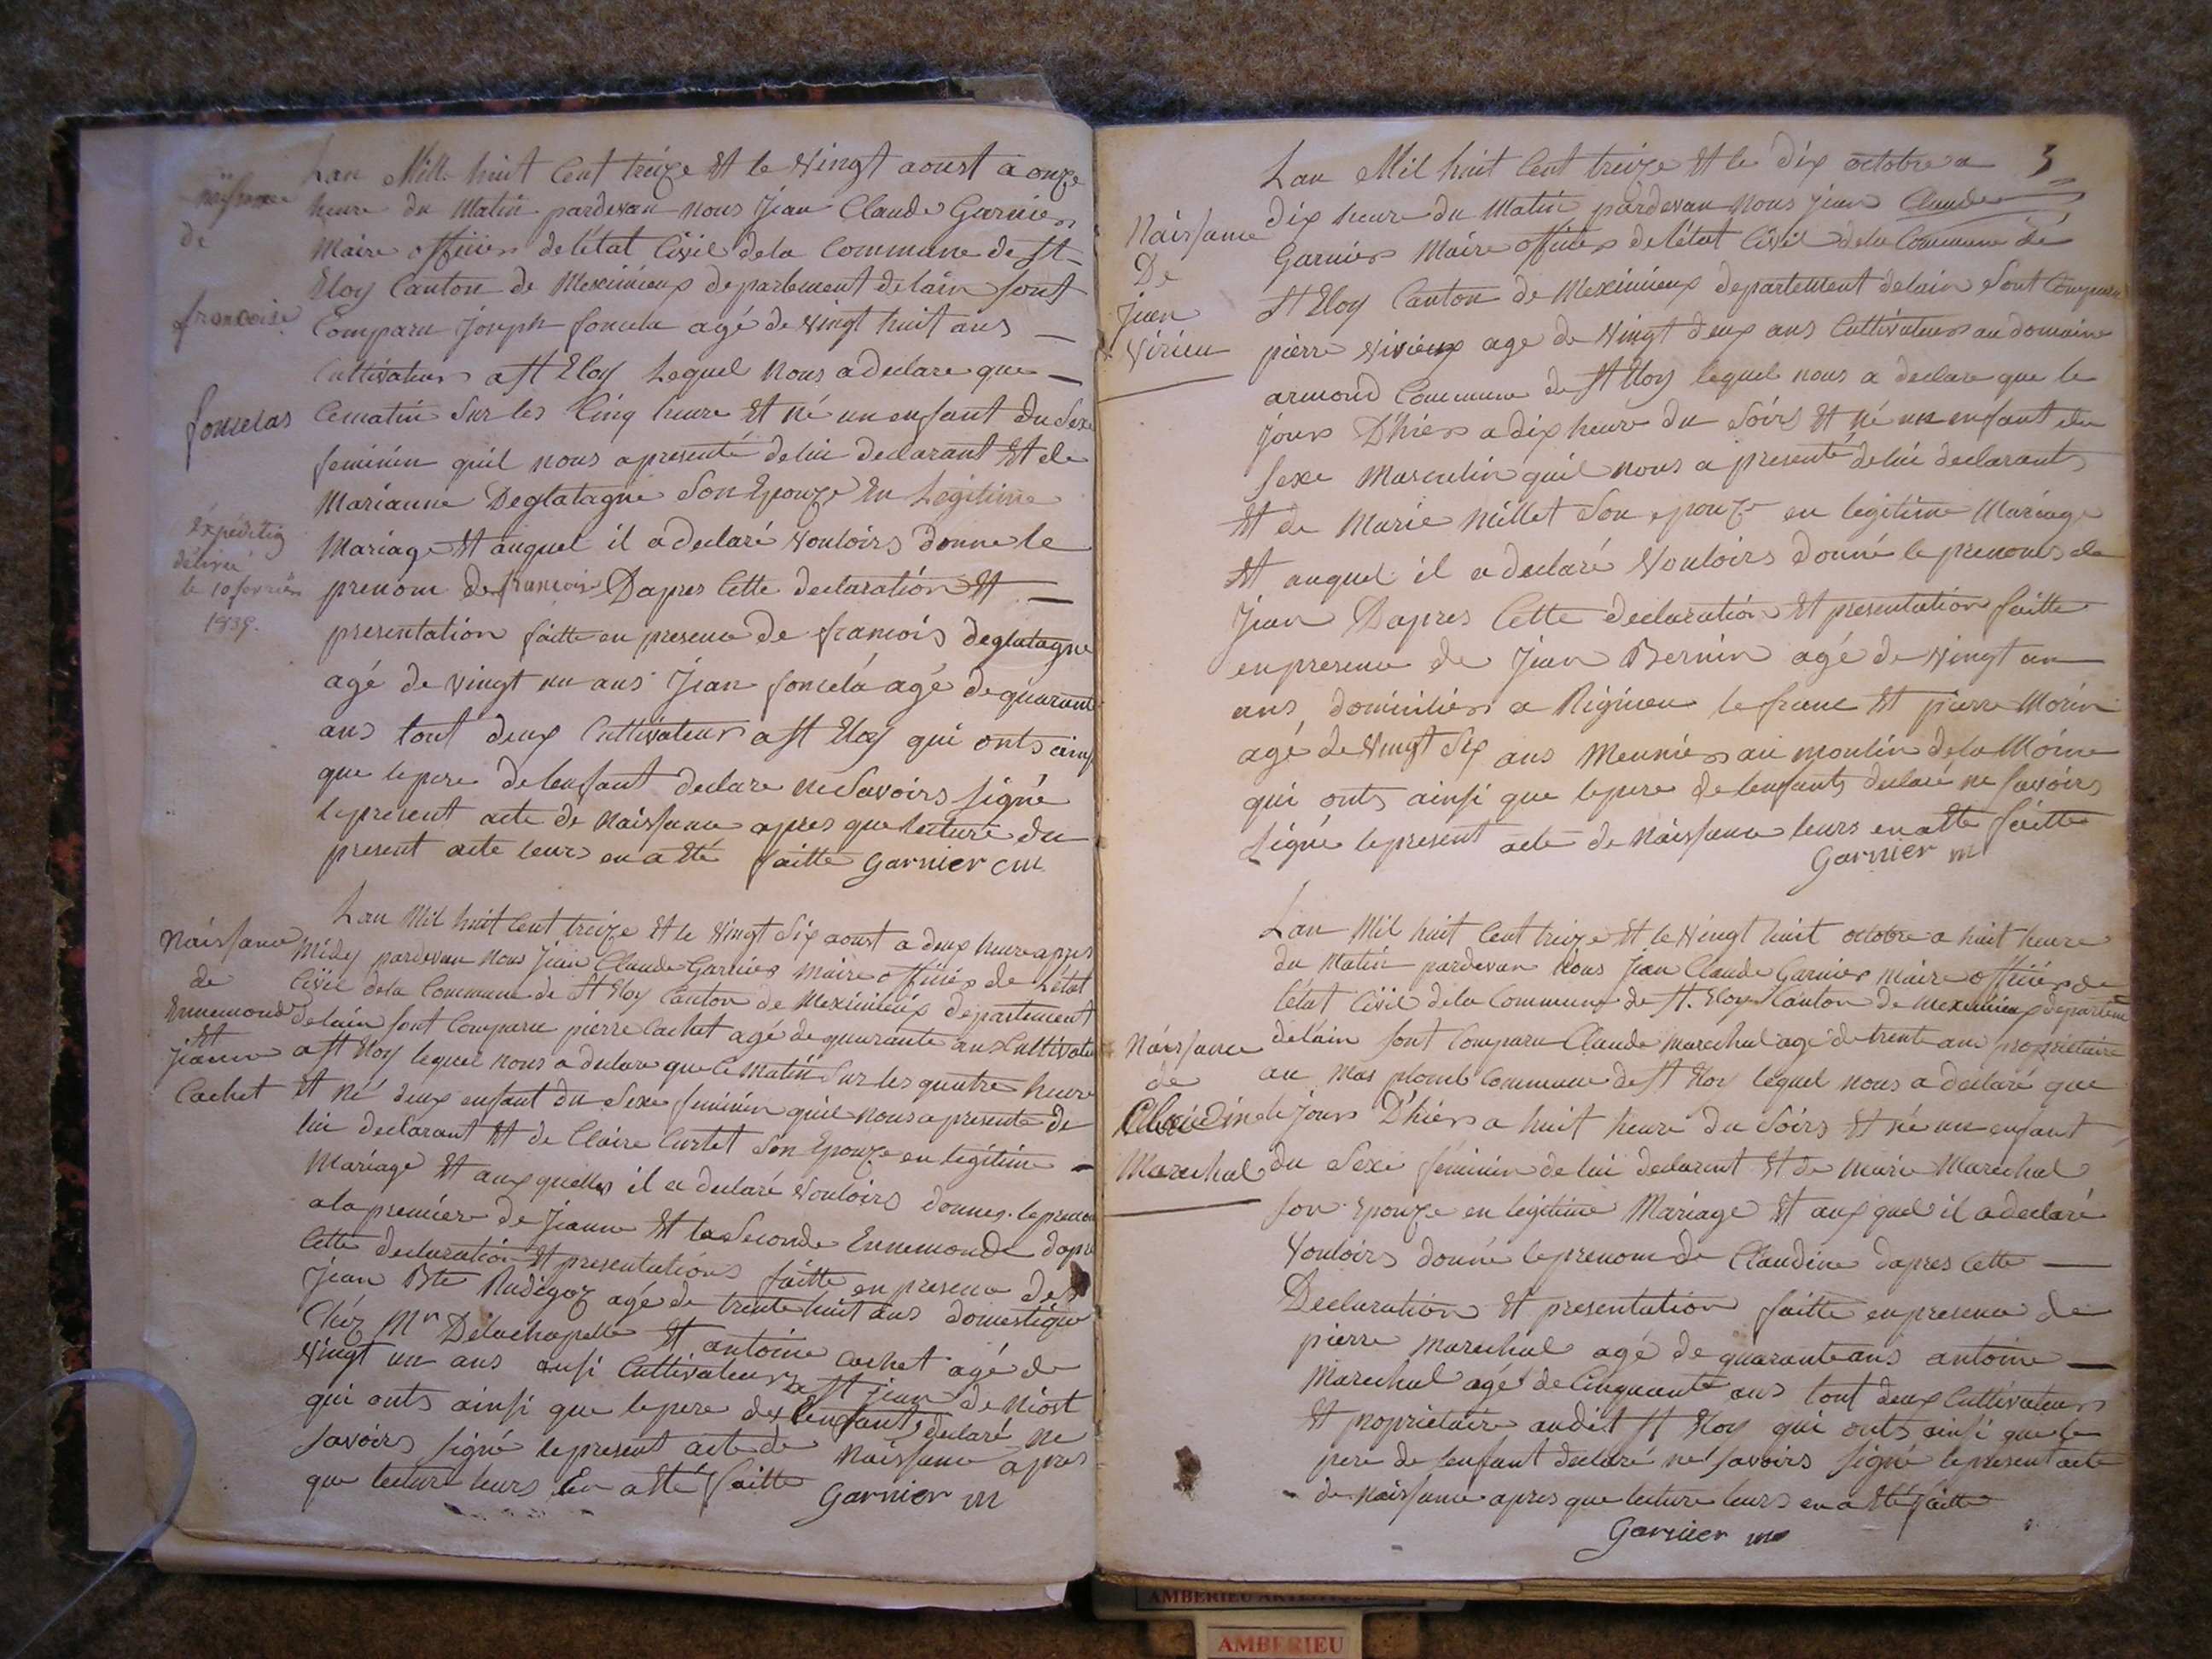 naissance
de
francoise
fonselas
Expédition
délivré
le 10 fevrier
1839.
Lan Mille huit Cent treize Et le Vingt aoust a onze
heure du Matin pardevan nous Jean Claude Garnier
Maire officier de létat Civil dela Commune de St
Eloy Canton de Meximieux departement delain sont
Comparu Joseph fonsela agé de Vingt huit ans
Cultivateur a St Eloy Lequel nous a declare que
Cematin Sur les Cinq heure Et né un enfant du Sexe
feminin quil nous apresenté delui declarant Et de
Marianne Deglatagne Son Epouze En Legitime
Mariage Et auquel il a declaré Vouloirs donne le
prenom de francois Dapres Cette declaration Et
presentation faitte en presence de francois deglatagne
agé de Vingt un ans Jean fonsela agé de quarante
ans tout deux Cultivateur a St Eloy qui onts ainsi
que lepere de lenfant declare ne Savoirs signé
lepresent acte de Naissance apres que lecture du
present acte leurs en a Eté faitte Garnier m
Naissance
de
Ennemonde
Et
Jeanne
Cachet
Lan Mil huit Cent treize Et le Vingt Six aoust a deux heure apres
Midy pardevan nous Jean Claude Garnier maire officier de Létat
Civil dela Commune de St Eloy Canton de Meximieux departement
Delain sont Comparu pierre Cachet agé de quarante ans Cultivateur
a St Eloy lequel nous a declare que Ce matin Sur les quatre heure
Et né deux enfant du Sexe feminin quil nous a presenté de
lui declarant Et de Claire Curtet Son Epouze en legitime
Mariage Et auxquelles il a declaré Vouloirs donner le prenom
ala premiere de Jeanne Et la Seconde Ennemonde dapres
Cette declaration Et presentations faitte en presence de
Jean Bte Rudigoz agé de trente huit ans domestique
Chéz Mr Delachapelle Et antoine Cachet agé de
Vingt un ans ausi Cultivateur a St Jean de Niost
qui onts ainsi que lepere des Lenfants declaré ne
Savoirs signé lepresent acte de Naissance apres
que lecture leurs En a Eté faitte Garnier m
3
Naissance
De
Jean
Virieu
Lan Mil huit Cent treize Et le Dix octobre a
dix heure du Matin pardevan nous Jean Claude
Garnier Maire officier de létat Civil dela Commune de
St Eloy Canton de Meximieux departement delain Sont Comparu
pierre Virieux age de Vingt deux ans Cultivateur au domaine
armond Commune de St Eloy lequel nous a declare que le
Jour D'hier a dix heure du Soirs Et né un enfant du
Sexe Masculin quil nous a presenté delui declarant
Et de Marie Millet Son epouze en legitime Mariage
Et auquel il a declaré Vouloirs donné le prenoms de
Jean Dapres Cette declaration Et presentation faitte
enpresence de Jean Bernin agé de Vingt un
ans domicilier a Rignieu le franc Et pierre Morin
agé de Vingt Six ans Meunier au moulin dela Morne
qui onts ainsi que lepere de lenfants declaré ne Savoirs
Signé lepresent acte de Naissance leurs en atté faitte
Garnier m
Naissance
de
Claudine
Marechal
Lan Mil huit Cent treize Et le Vingt huit octobre a huit heure
du Matin pardevan Nous Jean Claude Garnier Maire officier de
létat Civil dela Commune de St. Eloy Canton de Meximieux departem
delain sont Comparu Claude Marechal agé de trente ans proprietaire
au Mas plomb Commune de St Eloy lequel nous a declaré que
le Jour D'hier a huit heure du Soirs Et né un enfant
du Sexe feminin de lui declarent Et de Marie Marechal
Son Epouze en legitime Mariage Et aux quel il a declaré
Vouloirs donné leprenom de Claudine dapres Cette
Declaration Et presentation faitte en presence de
pierre Marechal agé de quarante ans antoine
Marechal agé de Cinquante ans tout deux Cultivateur
Et proprietaire audit St Eloy qui onts ainsi que le
pere de lenfant declaré né Savoirs signé lepresent acte
de Naissance apres que lecture leurs en a Eté faitte
Garnier m
AMBERIEU
AMBERIEU